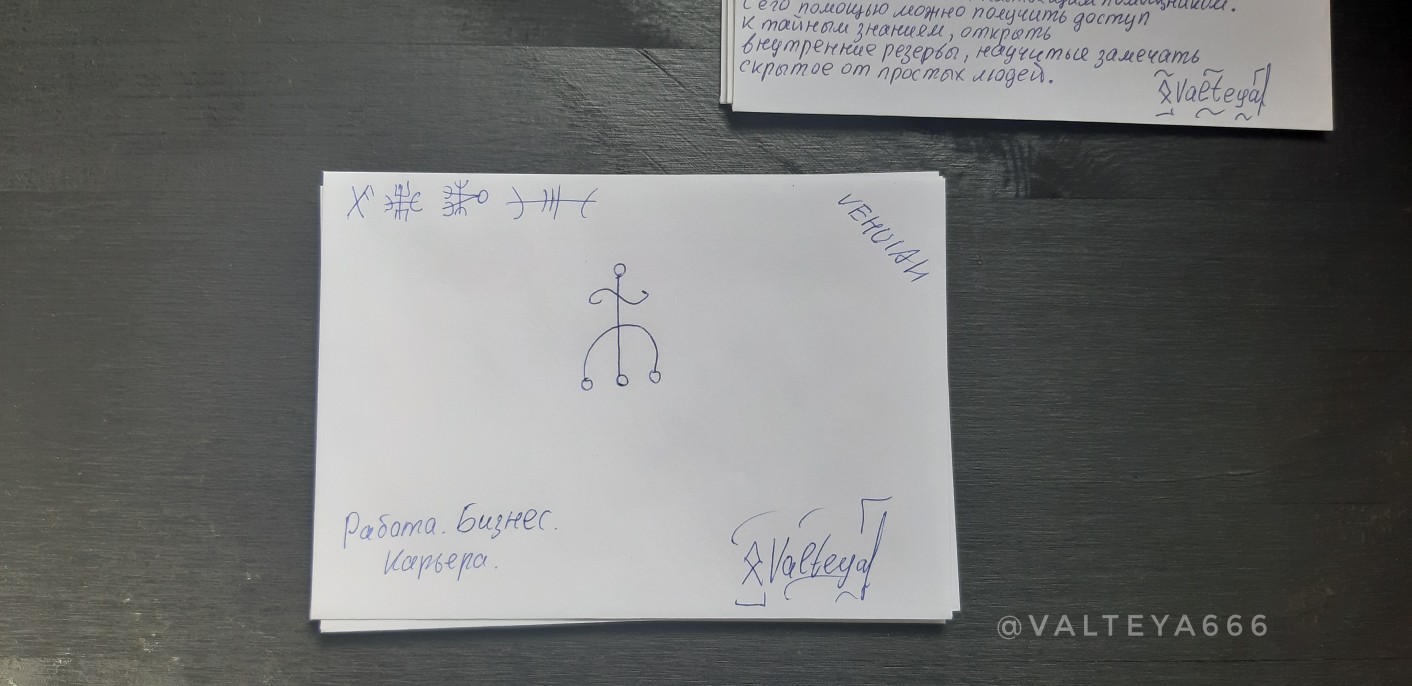 с его помощью можно получить доступ
к тайным знанием, открыть
внутренние резервы, научиться замечать
скрытое от простых людей.
Valteya
VEHUIAH
Работа. Бизнес.
Карьера.
Valteya
@VALTEYA666